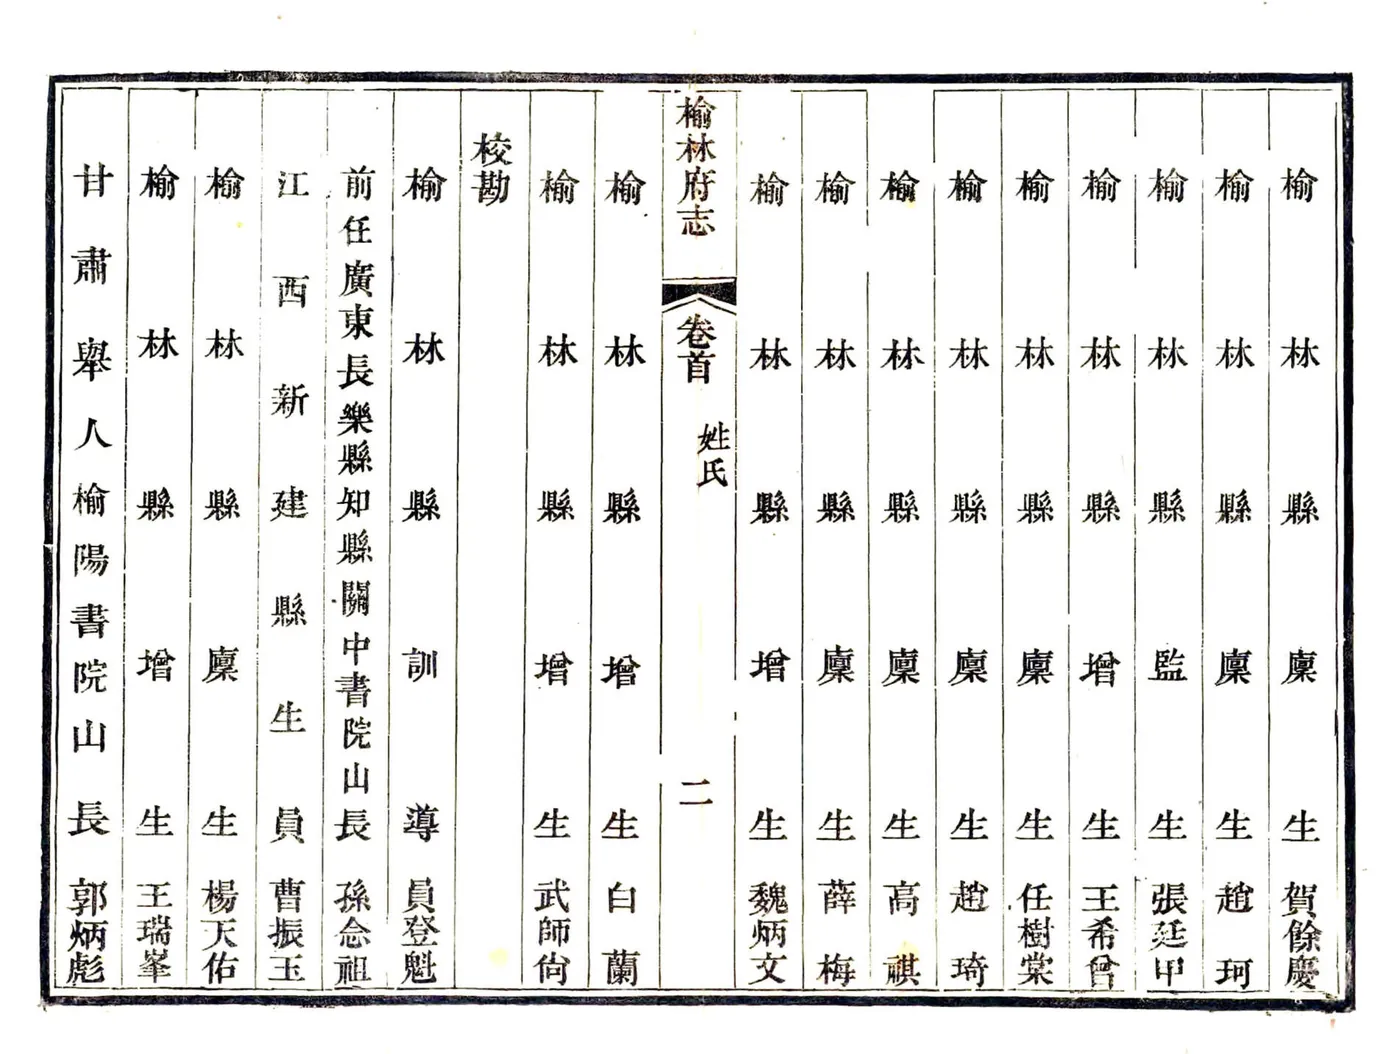 榆林縣廩生賀餘慶
榆林縣廩生趙珂
榆林縣監生張廷甲
榆林縣增生王希曾
榆林縣廩生任樹棠
榆林縣廩生趙琦
榆林縣廩生高祺
榆林縣廩生薛梅
榆林縣增生魏炳文
榆林府志 卷首 姓氏 二
榆林縣增生白蘭
榆林縣增生武師尙
校勘
榆林縣訓導員登魁
前任廣東長樂縣知縣關中書院山長孫念祖
江西新建縣生員曹振玉
榆林縣廩生楊天佑
榆林縣增生王瑞峯
甘肅舉人榆陽書院山長郭炳彪